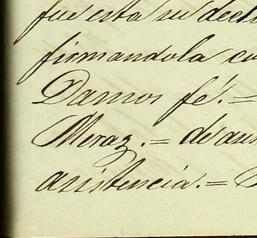 fue esta su decl
firmandola co
Damos fé.=
Meraz.= de asis
asistencia.=